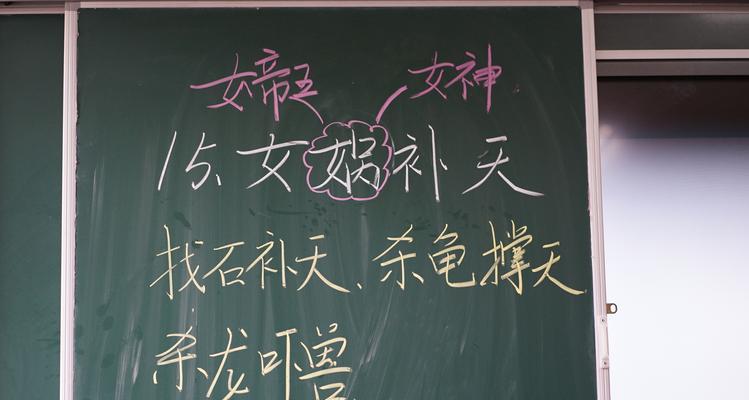 女帝王 女神
15、女娲补天
找石补天、杀龟撑天
杀龙吓兽